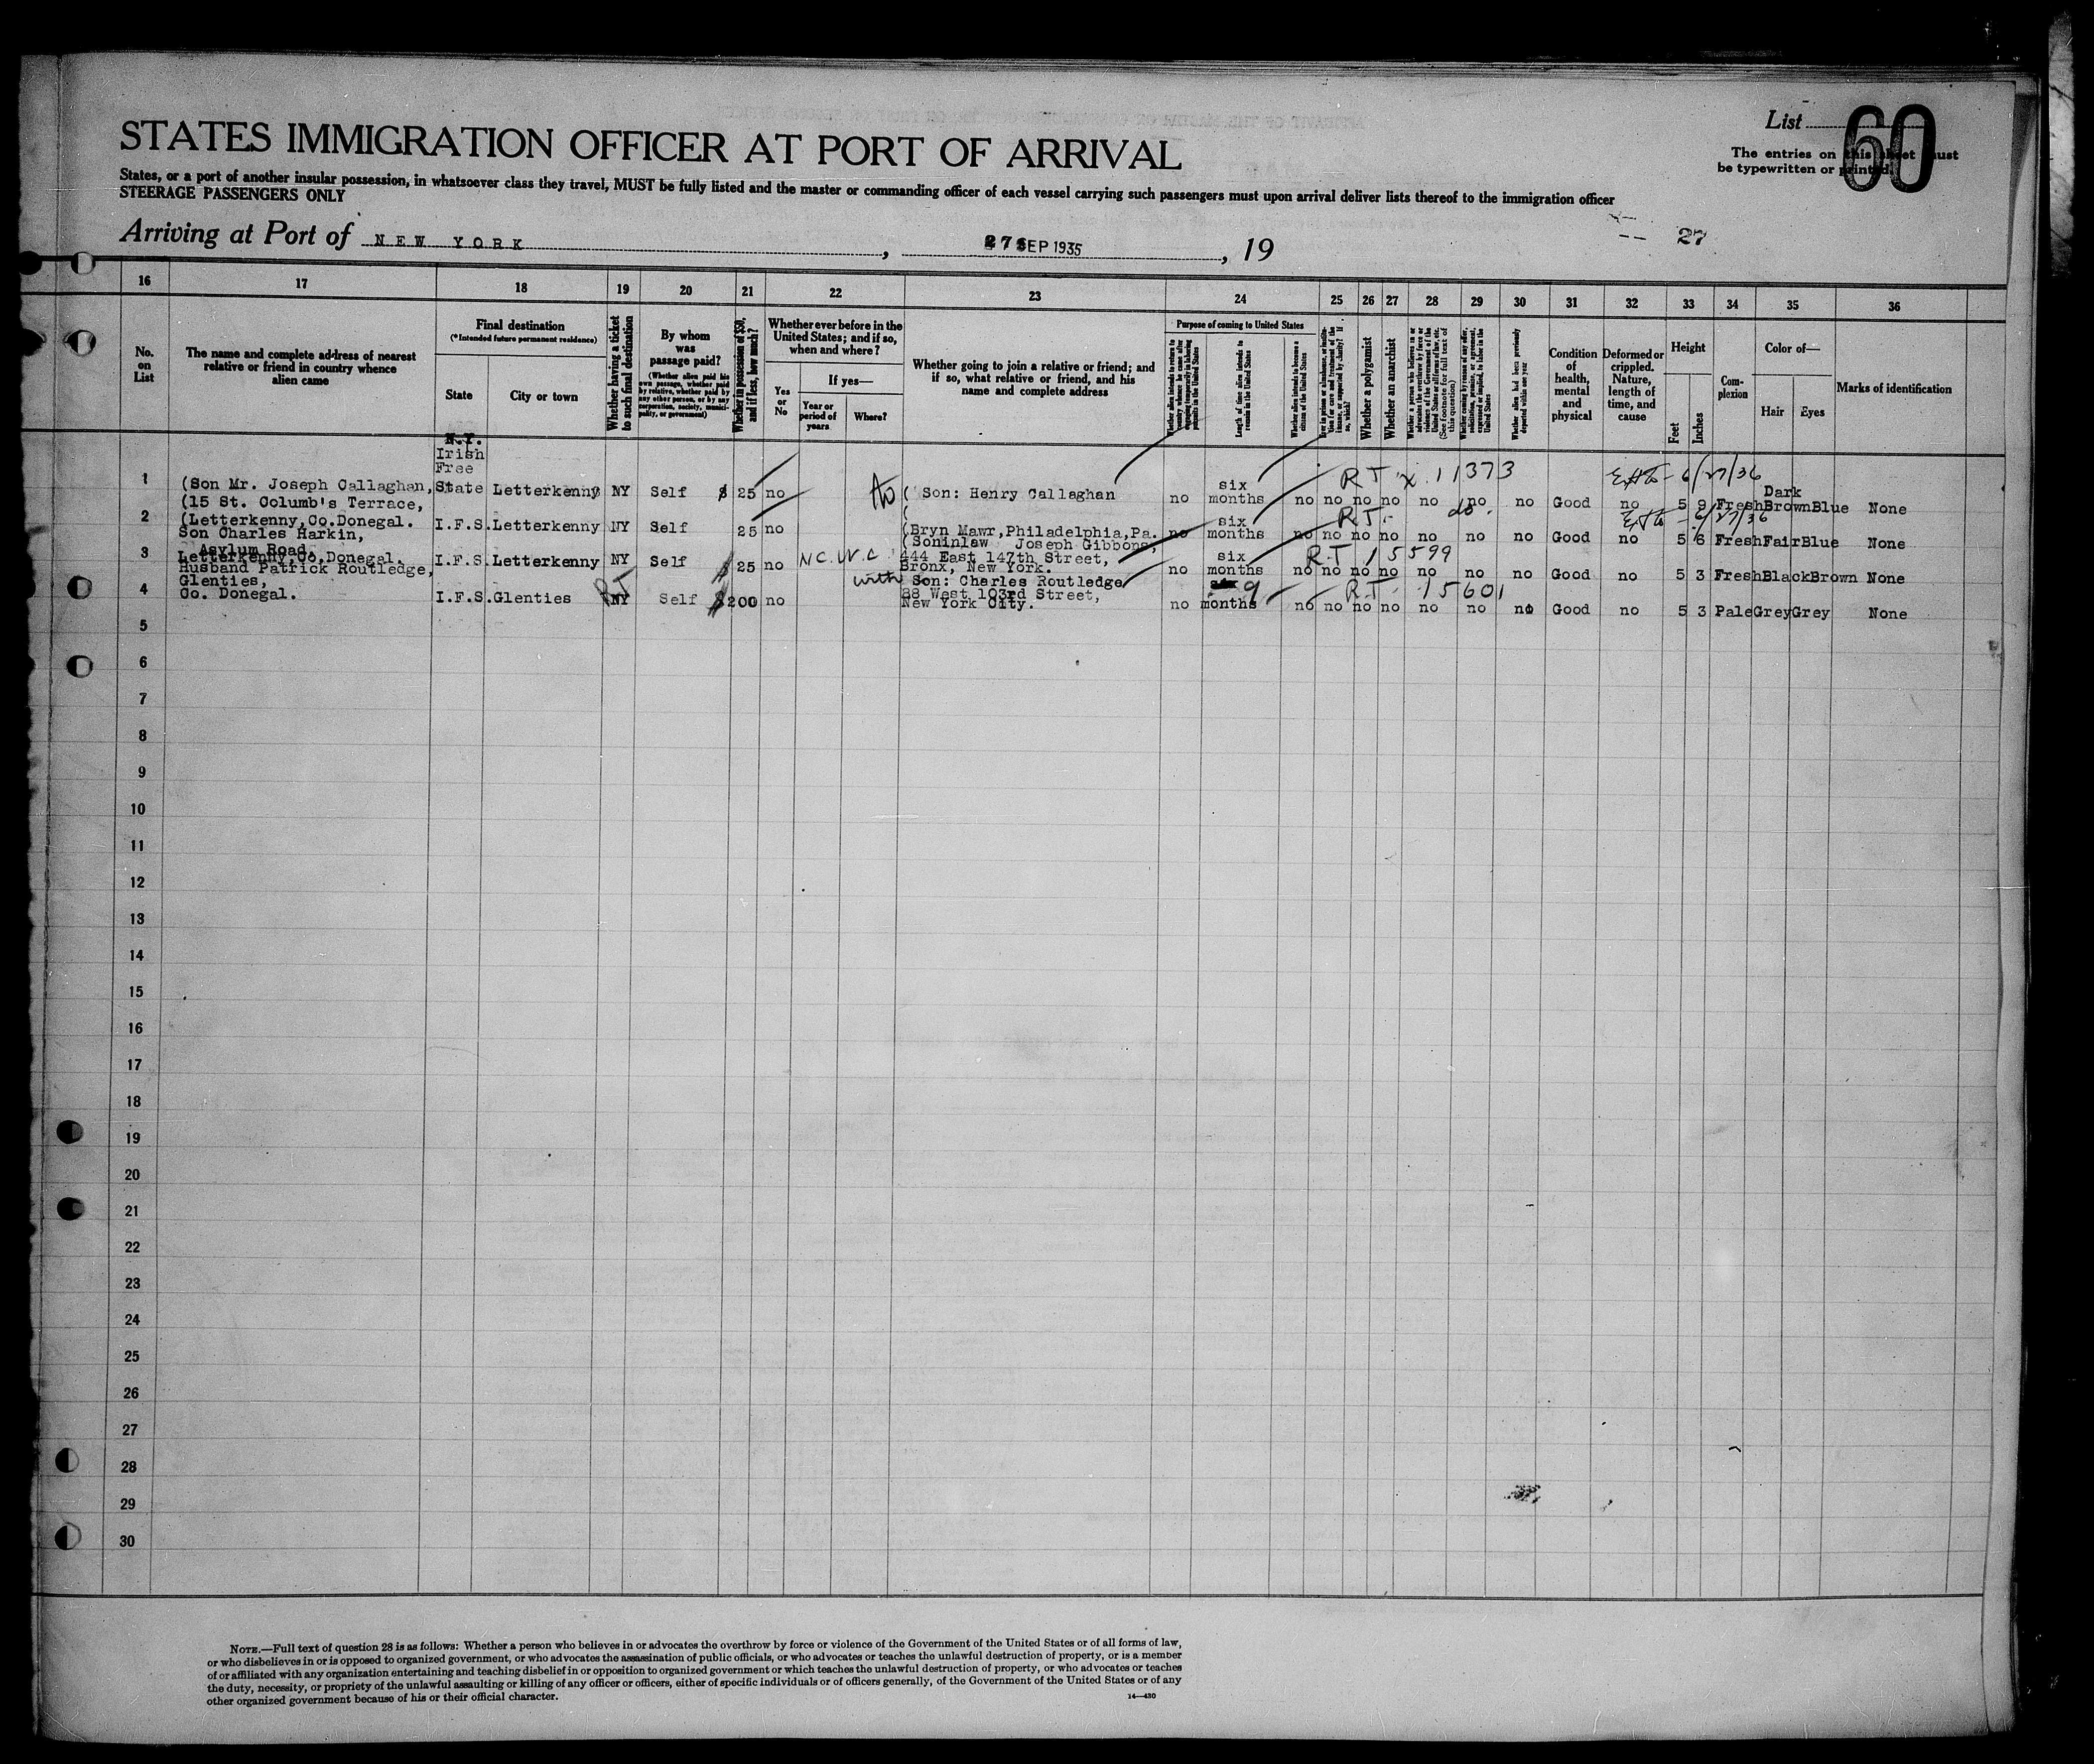 STATES IMMIGRATION OFFICER AT PORT OF ARRIVAL
List
60
The entries on this sheet must
be typewritten or printed.
States, or a port of another insular possession, in whatsoever class they travel, MUST be fully listed and the master or commanding officer of each vessel carrying such passengers must upon arrival deliver lists thereof to the immigration officer
STEERAGE PASSENGERS ONLY
Arriving at Port of NEW YORK, 27 SEP 1935, 19
27
16 17 18 19 20 21 22 23 24 25 26 27 28 29 30 31 32 33 34 35 36
No. on List
The name and complete address of nearest relative or friend in country whence alien came
Final destination
(*Intended future permanent residence)
State
City or town
Whether having a ticket to such final destination
By whom was passage paid?
(Whether alien paid his own passage, whether paid by relative, whether paid by any other person, or by any corporation, society, municipality, or government)
Whether in possession of $50, and if less, how much?
Whether ever before in the United States; and if so, when and where?
Yes or No
If yes—
Year or period of years
Where?
Whether going to join a relative or friend; and if so, what relative or friend, and his name and complete address
Purpose of coming to United States
Length of time alien intends to remain in the United States
Whether alien intends to become a citizen of the United States
Whether a polygamist
Whether an anarchist
Whether alien had been previously deported within one year
Condition of health, mental and physical
Deformed or crippled. Nature, length of time, and cause
Height
Feet
Inches
Complexion
Color of—
Hair
Eyes
Marks of identification
N.Y.
Irish
Free
1 (Son Mr. Joseph Callaghan, State Letterkenny NY Self $ 25 no to ( Son: Henry Callaghan no six months no no no no no no no Good no 5 9 Fresh Dark Brown Blue None
R T x 11373
6/27/36
(15 St. Columb's Terrace,
2 (Letterkenny, Co.Donegal. I.F.S. Letterkenny NY Self 25 no (Bryn Mawr, Philadelphia, Pa. no six months no no no no no no no Good no 5 6 Fresh Fair Blue None
R.T. do.
6/27/36
Son Charles Harkin,
Asylum Road,
(Soninlaw Joseph Gibbons,
3 Letterkenny, Co.Donegal. I.F.S. Letterkenny NY Self $ 25 no 444 East 147th Street, no six months no no no no no no no Good no 5 3 Fresh Black Brown None
Bronx, New York.
R.T 15599
Husband Patrick Routledge,
Glenties,
with Son: Charles Routledge
4 Co. Donegal. I.F.S. Glenties NY Self $200 no 88 West 103rd Street, no 9 months no no no no no no no Good no 5 3 Pale Grey Grey None
New York City.
RT
R.T. 15601
5
6
7
8
9
10
11
12
13
14
15
16
17
18
19
20
21
22
23
24
25
26
27
28
29
30
NOTE.—Full text of question 28 is as follows: Whether a person who believes in or advocates the overthrow by force or violence of the Government of the United States or of all forms of law,
or who disbelieves in or is opposed to organized government, or who advocates the assassination of public officials, or who advocates or teaches the unlawful destruction of property, or is a member
of or affiliated with any organization entertaining and teaching disbelief in or opposition to organized government or which teaches the unlawful destruction of property, or who advocates or teaches
the duty, necessity, or propriety of the unlawful assaulting or killing of any officer or officers, either of specific individuals or of officers generally, of the Government of the United States or of any
other organized government because of his or their official character.
14—430